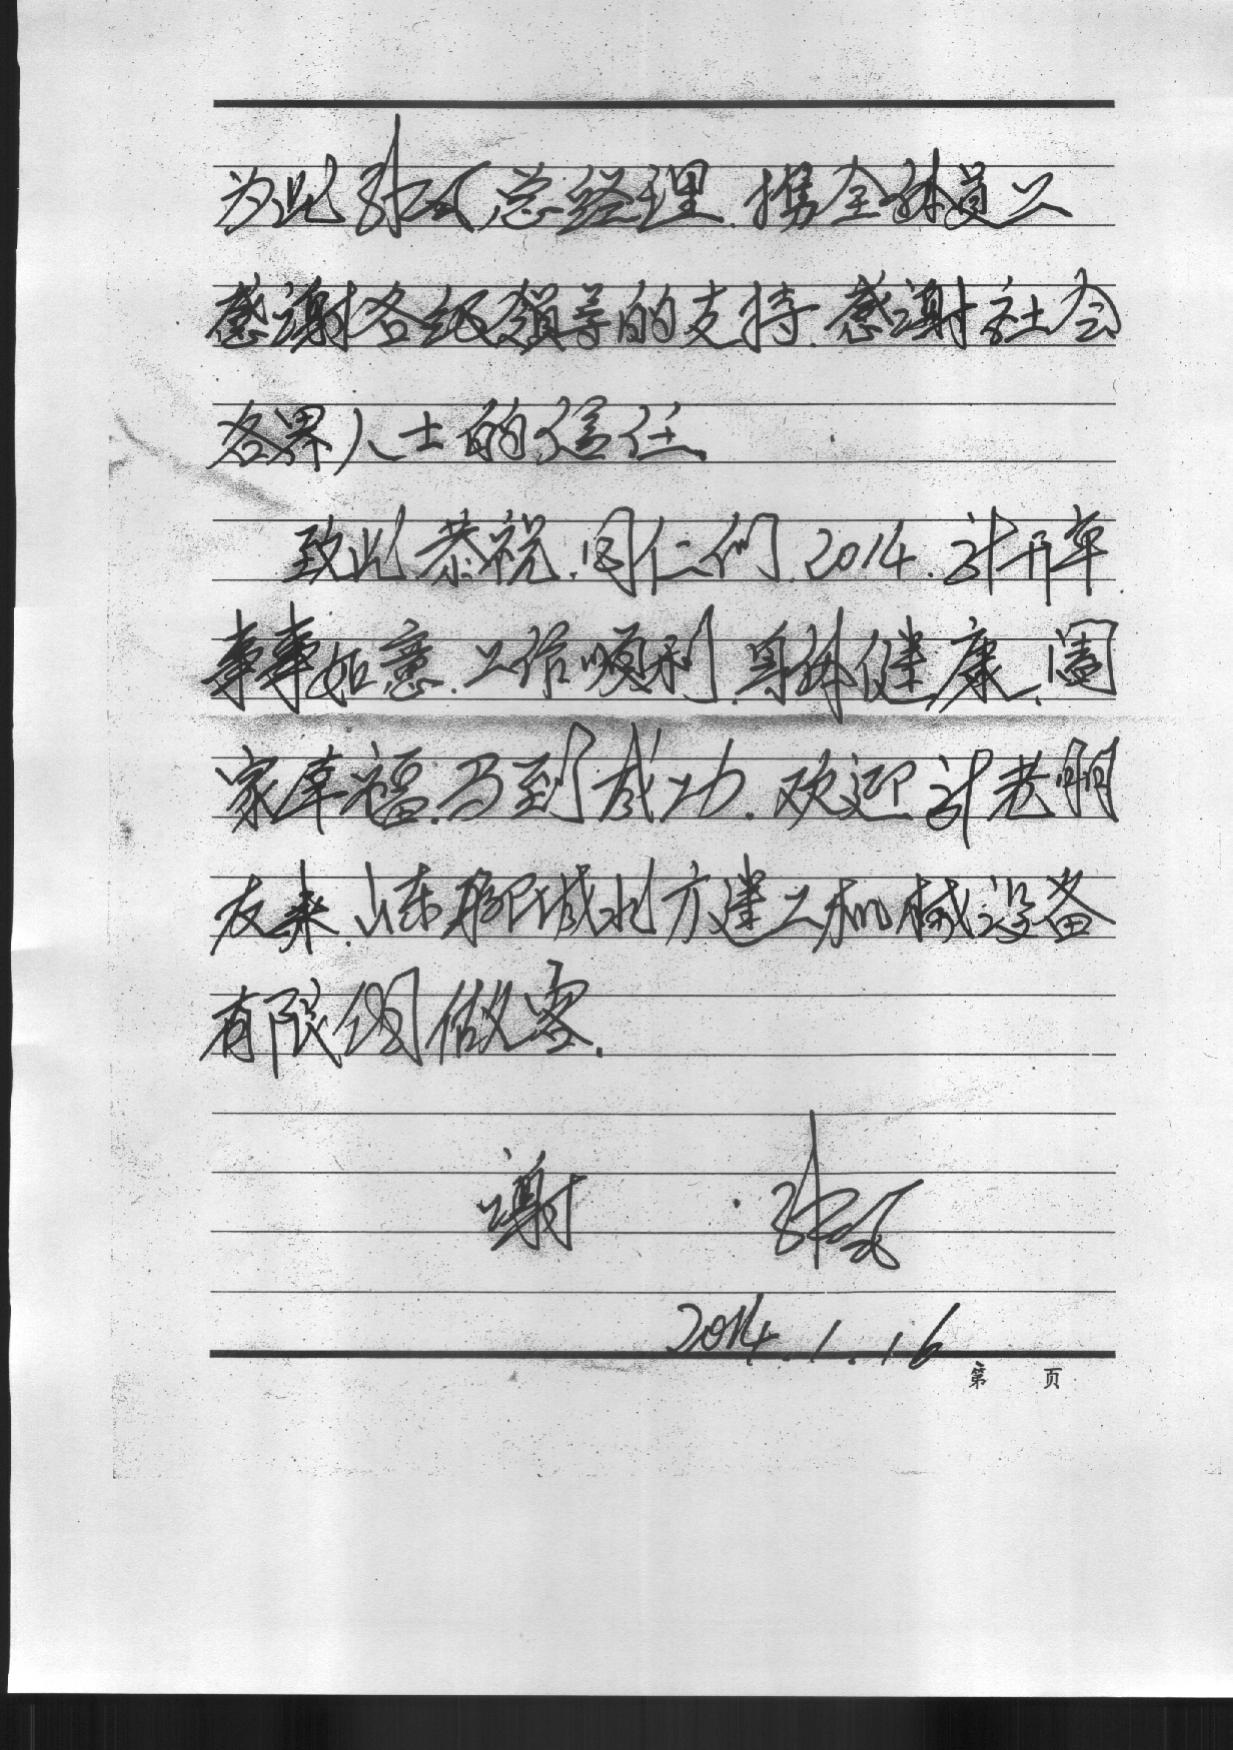 为此 总经理.携全体员工
感谢各级领导的支持.感谢社会
各界人士的信任.
致此恭祝.同仁们.2014.新年
事事如意.工作顺利.身体健康.阖
家幸福.马到成功.欢迎新老朋
友来.山东聊城北方建工机械设备
有限公司做客.
谢
2014.1.16
第 页